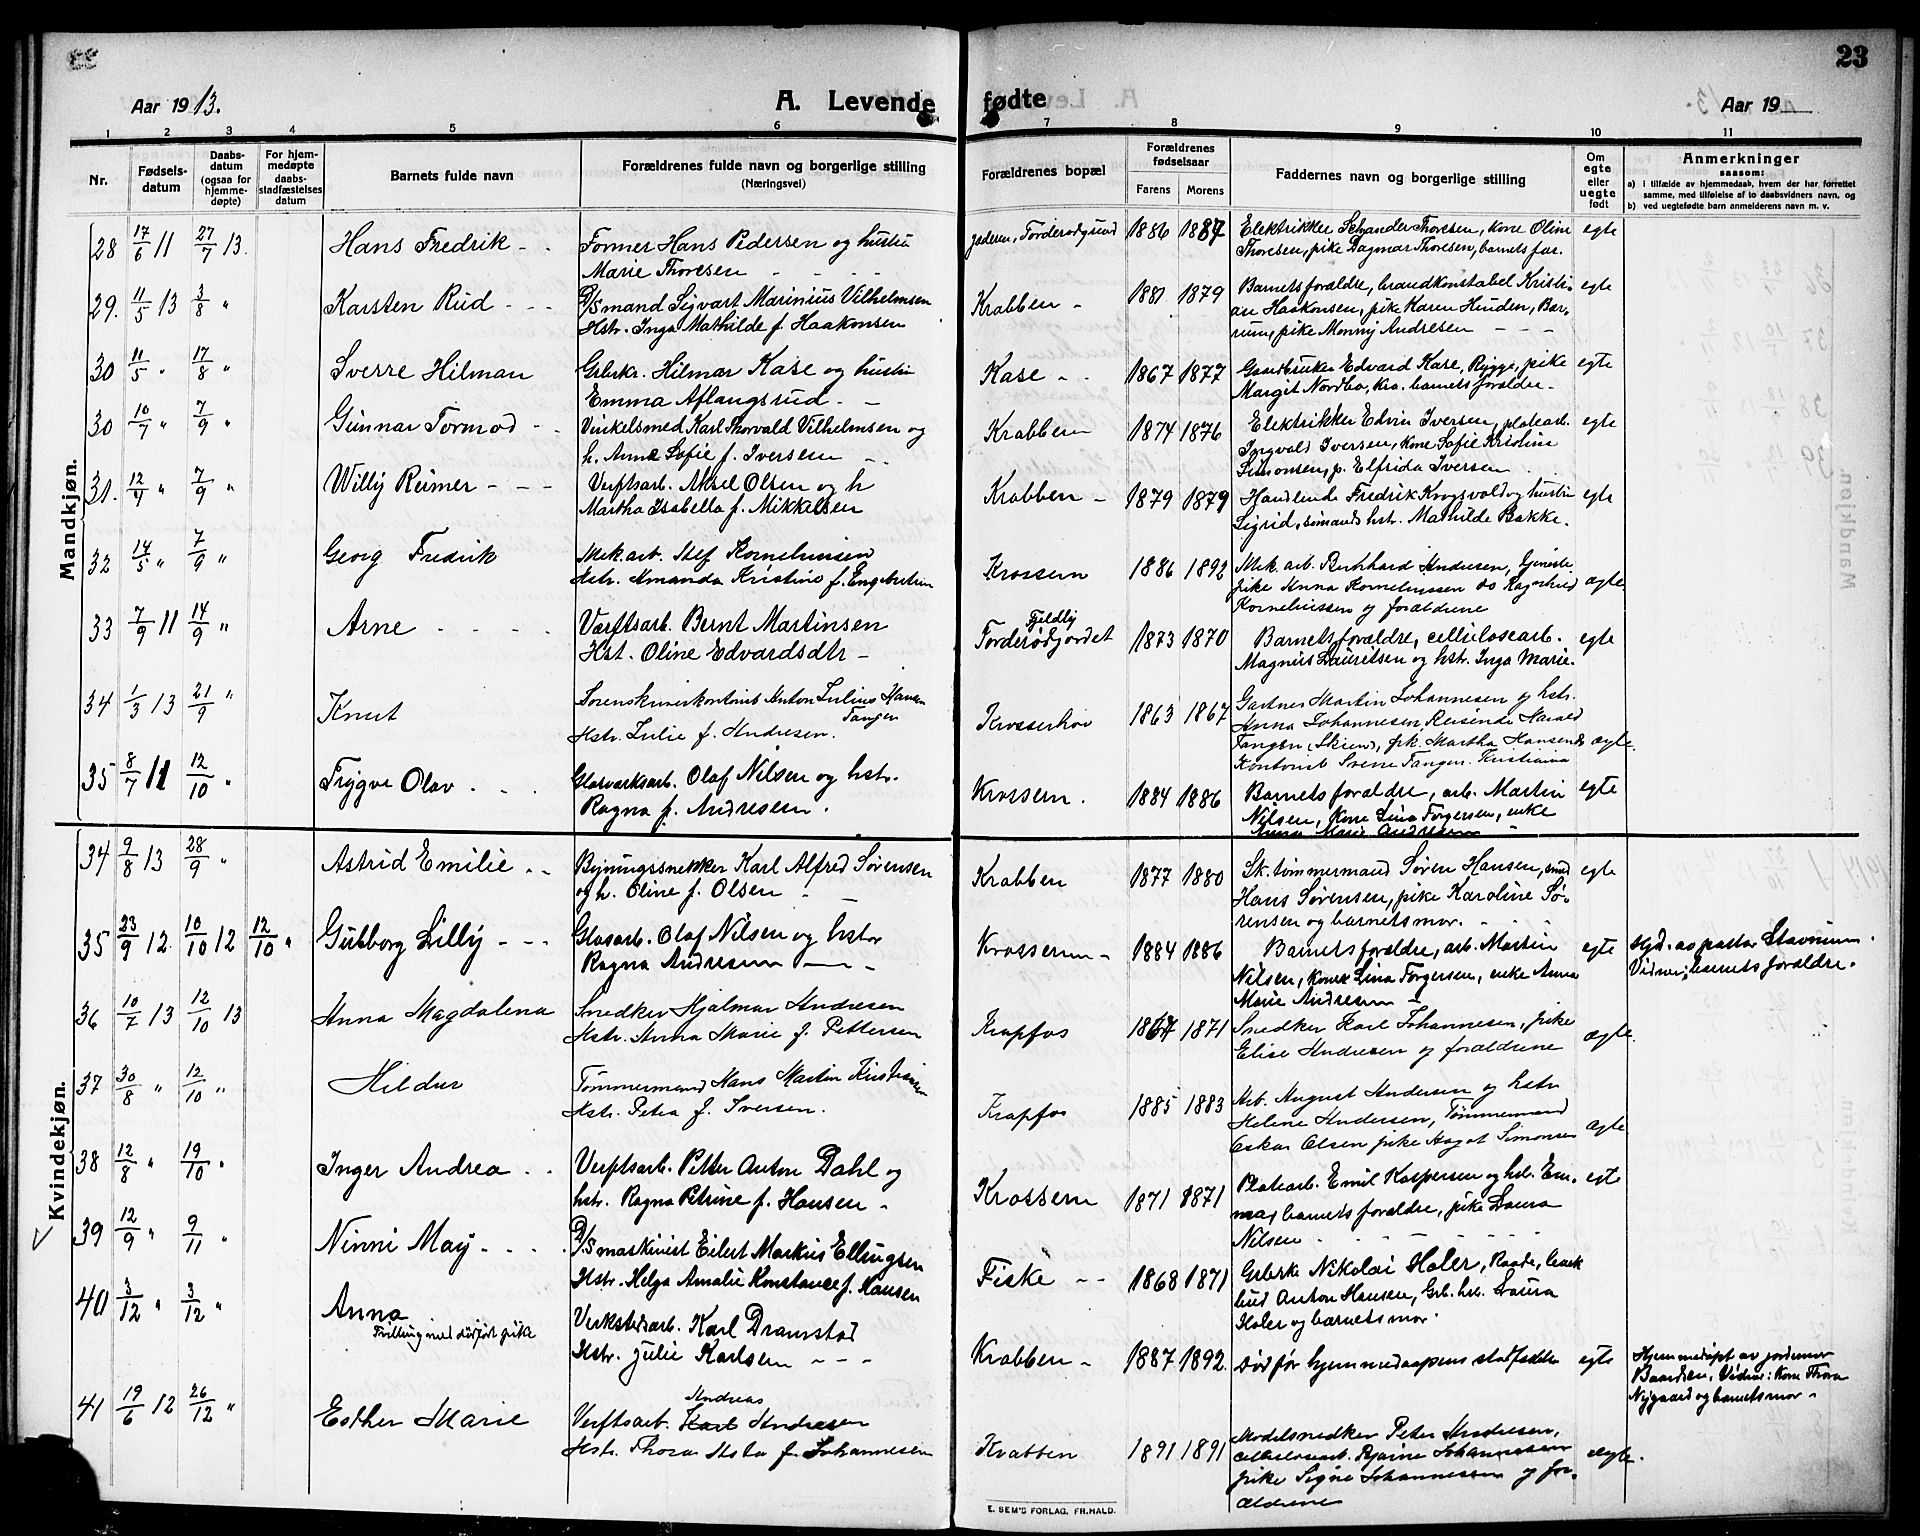 23
Aar 1913.
A. Levende fødte
Aar 19
1 2 3 4 5 6 7 8 9 10 11
Nr.
Fødsels-
datum
Daabs-
datum
(ogsaa for
hjemme-
døpte)
For hjem-
medøpte
daabs-
stadfæstelses
datum
Barnets fulde navn
Forældrenes fulde navn og borgerlige stilling
(Næringsvei)
Forældrenes bopæl
Forældrenes
fødselsaar
Farens Morens
Faddernes navn og borgerlige stilling
Om
egte
eller
uegte
født
Anmerkninger
saasom:
a) i tilfælde av hjemmedaab, hvem der har forrettet
samme, med tilføielse af to daabsvidners navn, og
b) ved uegtefødte barn anmelderens navn m. v.
Mandkjøn.
28 17/6 11 27/7 13. Hans Fredrik
Former Hans Pedersen og hustru
Marie Thoresen
1886 1887
Elektrikker Schander Thoresen, kone Olini
Thoresen, pike Dagmar Thoresen, barnets far.
egte
29. 11/5 13 3/8 " Karsten Rud
D/Smand Sigvart Marinius Vilhelmsen
Hstr. Inga Mathilde f. Haakonsen
Krabben 1881 1879
Barnets forældre, brandkonstabel Kristi-
an Haakonsen, pike Karen Hunden, Bær-
um, pike Monny Andresen
egte
30 11/5 " 17/8 " Sverre Hilman
Grbrkr. Hilmar Kase og hustru
Emma Aflangsrud
Kase 1867 1877
Gaardbruker Edvard Kase, Rygge, pike
Margit Nordbo, Kra. barnets forældre
egte
30 10/7 " 7/9 " Gunnar Tormod
Vinkelsmed Karl Thorvald Vilhelmsen og
h. Anna Sofie f. Iversen
Krabben 1874 1876
Elektrikker Edvin Iversen, platearb.
Ingvald Iversen, kone Sofie Kristine
Simonsen, p. Elfrida Iversen
egte
31. 12/7 " 7/9 " Willy Reimer
Verftsarb. Aksel Olsen og h
Martha Isabella f. Mikkelsen
Krabben 1879 1879
Handlende Fredrik Krogsvold og hustru
Sigrid, sømands hstr. Mathilde Bakke.
egte
32 14/5 " 7/9 " Georg Fredrik
Mek. arb. Alef Korneliussen
Hstr. Amanda Kristine f. Engebretsen
Krossern 1886 1892
Mek. arb. Burkhard Andersen, tjeneste-
pike Anna Korneliussen do Ragnhild
Korneliussen og forældrene
ægte
33 7/9 11 14/9 " Arne
Værftsarb. Bernt Martinsen
Hst. Oline Edvardsdtr
Fjeldly
Torderødjordet 1873 1870
Barnets forældre, cellulosearb.
Magnus Lauritsen og hstr. Inga Marie.
egte
34 1/3 13 21/9 " Knut
Sorenskriverkontorist Anton Julius Hansen
Tangen
Hstr. Julie f. Andresen.
Krosserhøi 1863 1867
Gartner Martin Johannesen og hstr.
Anna Johannesen, Reisende Harald
Tangen (Skien), pik. Martha Hansen
Kontorist Svene Tangen. Kristiania
ægte
35 8/7 11 12/10 " Trygve Olav
Glasverksarb. Olaf Nilsen og hstr.
Ragna f. Andresen.
Krossern. 1884 1886
Barnets forældre, arb. Martin
Nilsen, kone Lina Torgersen, enke
Anna Marie Andresen
egte
Kvindekjøn.
34 9/8 13 28/9 " Astrid Emilie
Bygningssnekker Karl Alfred Sørensen
og h. Oline f. Olsen
Krabben 1877 1880
Sk. tømmermand Søren Hansen, smed
Hans Sørensen, pike Karoline Sø-
rensen og barnets mor.
egte
35 23/9 12. 10/10 12 12/10 " Gulborg Lilly
Glasarb. Olaf Nilsen og hstr
Ragna Andresen
Krossern 1884 1886
Barnets forældre, arb. Martin
Nilsen, kone Lina Torgersen, enke Anna
Marie Andresen
egte
Hjd. av pastor Stavnum.
Vidner: barnets forældre.
36 10/7 13 12/10 13 Anna Magdalena
Snedker Hjalmar Andresen
Hstr. Anna Marie f. Pettersen
Krapfos 1867 1871
Snedker Karl Johannesen, pike
Elise Andresen og forældrene
ægte
37 30/8 " 12/10 " Hildur
Tømmermand Hans Martin Kristiansen
Hstr. Petra f. Iversen.
Krapfos 1885 1883
Arb. August Andersen og hstr
Helene Andersen, Tømmermand
Oskar Olsen pike Aagot Simonsen
ægte
38 12/8 " 19/10 " Inger Andrea
Verftsarb. Petter Anton Dahl og
hstr. Ragna Petrine f. Hansen
Krossern 1871 1871
Platearb. Emil Kaspersen og hstr. Em-
ma, barnets forældre, pike Laura
Nilsen
egte
39 12/9 " 9/11 " Ninni May
D/Smaskinist Eilert Markus Ellingsen
Hstr. Helga Amalie Konstance f. Hansen
Fiske 1868 1871
Grbrkr Nikolai Holer, Raade,
Anton Hansen, Grb. hstr. Laura
Holer og barnets mor.
40 3/12 " 3/12 " Anna
Tvilling med dødfødt pike
Verkstedsarb. Karl Dramstad
Hstr. Julie Karlsen
Krabben 1887 1892.
Død før hjemmedaapens stadfæstelse
egte
Hjemmedøpt av jordemor
Baardsen. Vidne: kone Thora
Nygaard og barnets mor
41 19/6 12 26/12 " Esther Marie
Andreas
Verftsarb. Karl Andresen
Hstr. Thora Asta f. Johannesen
Krabben 1891 1891
Modelsnedker Peter Andresen,
cellulosearb. Bjarne Johannesen
pike Signe Johannesen og for-
ældrene
ægte.
E. SEM'S FORLAG. FR.HALD.